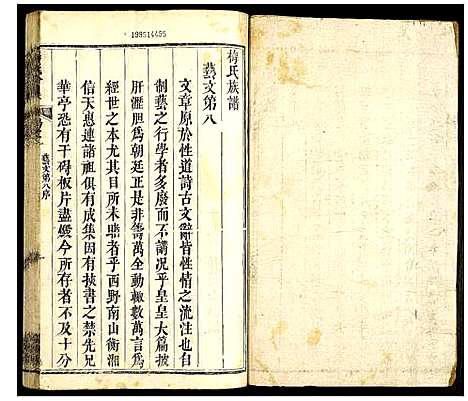 199514495
梅氏族譜
藝文第八
文章原於性道詩古文辭皆性情之流注也自
制藝之行學者多廢而不講况乎皇皇大篇披
肝瀝胆爲朝廷正是非籌萬全動輒數萬言爲
經世之本尤其目所未睹者乎西野南山衡湘
信天惠連諸祖俱有成集因有挾書之禁先兄
華亭恐有干碍板片盡燬今所存者不及十分
藝文第八序